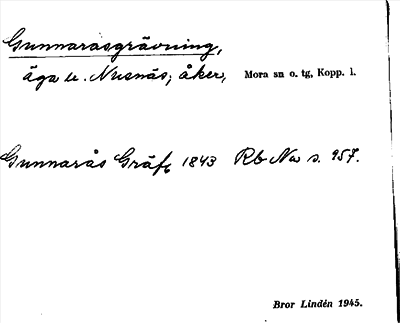 Gunnarasgrävning,
äga u. Nusnäs; åker, Mora sn o. tg, Kopp. l.
Gunnarås Gräf 1843 Rb Nus s. 957.
Bror Lindén 1945.